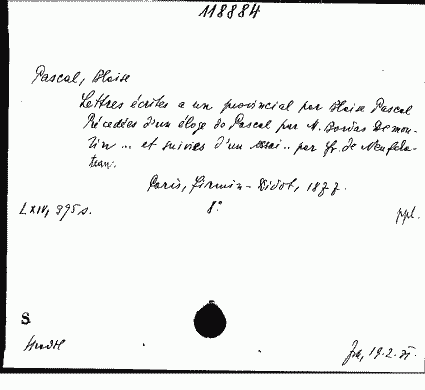 118884
Pascal, Blaise
Lettres écrites a un provincial par Blaise Pascal
Précedées d'un éloge de Pascal par M. Bordas Demou-
lin ... et suivies d'un essai .. par Fr. de Neufcha-
teau.
Paris, Firmin-Didot, 1877.
LXIV, 395 s. 8° ppl.
S
19.2.